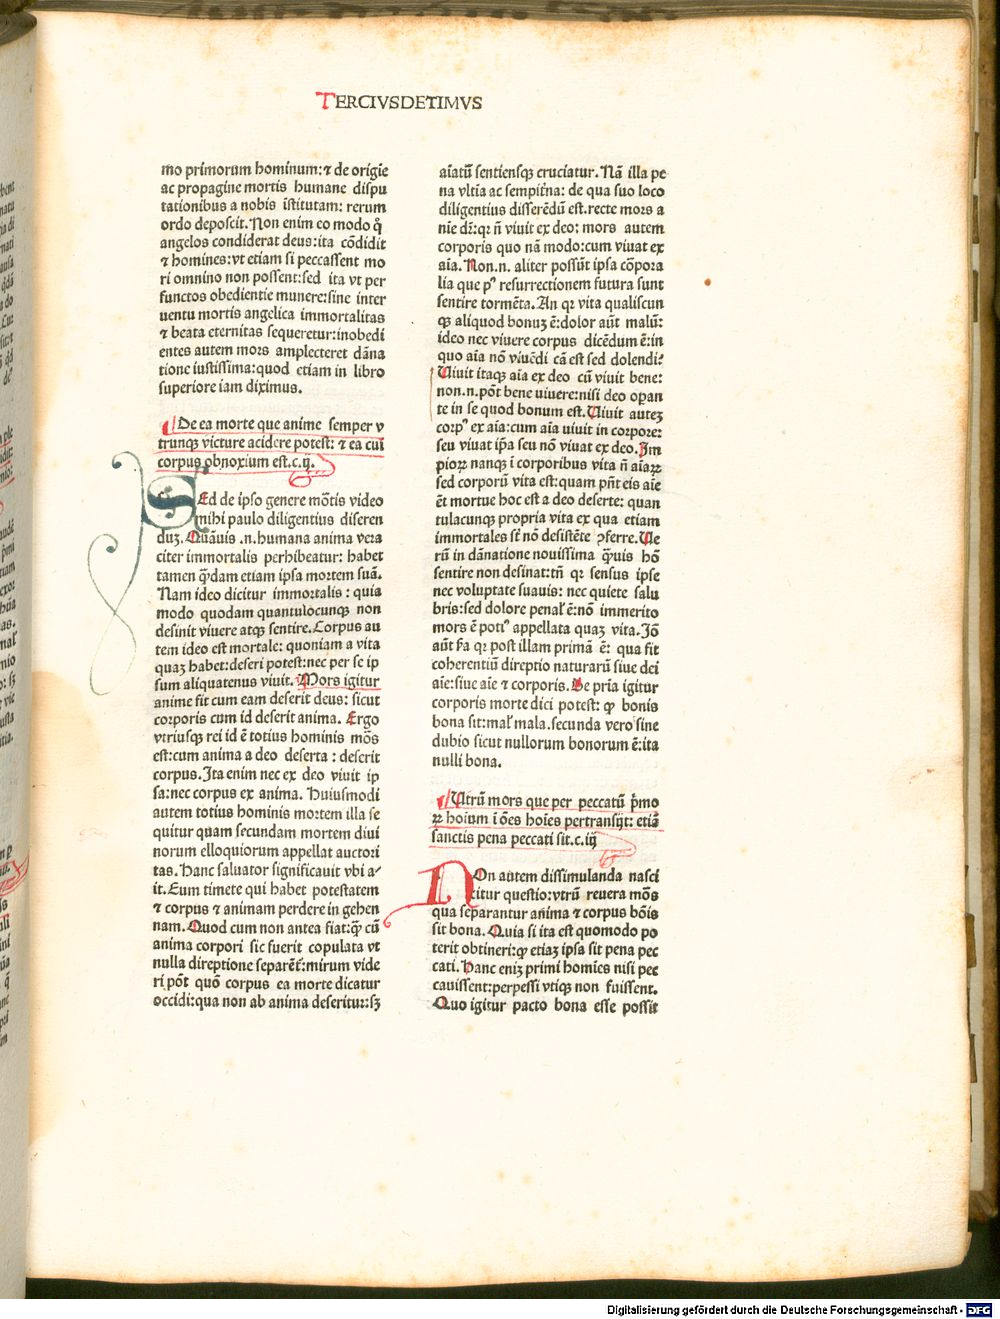 TERCIVSDETIMVS
mo primorum hominum:⁊ de origīe
ac propagine mortis humane dispu
tationibus a nobis īstitutam: rerum
ordo deposcit. Non enim eo modo q̄
angelos condiderat deus:ita cōdidit
⁊ homines:vt etiam si peccassent mo
ri omnino non possent:sed ita vt per
functos obedientie munere:sine inter
uentu mortis angelica immortalitas
⁊ beata eternitas sequeretur:inobedi
entes autem mors amplecteret dāna
tione iustissima:quod etiam in libro
superiore iam diximus.
De ea morte que anime semper v
trunqꝫ victure acidere potest: ⁊ ea cui
corpus obnoxium est.c.ij.
SEd de ipso genere mōtis video
mihi paulo diligentius diseren
duꝫ. Quāuis .n.humana anima vera
citer immortalis perhibeatur: habet
tamen q̄dam etiam ipsa mortem suā.
Nam ideo dicitur immortalis : quia
modo quodam quantulocunqꝫ non
desinit viuere atqꝫ sentire. Corpus au
tem ideo est mortale: quoniam a vita
quaꝫ habet:deseri potest:nec per se ip
sum aliquatenus viuit. Mors igitur
anime fit cum eam deserit deus: sicut
corporis cum id deserit anima. Ergo
vtriusqꝫ rei id ē totius hominis mōs
est:cum anima a deo deserta : deserit
corpus. Ita enim nec ex deo viuit ip
sa:nec corpus ex anima. Huiusmodi
autem totius hominis mortem illa se
quitur quam secundam mortem diui
norum elloquiorum appellat auctori
tas. Hanc saluator significauit vbi a⁊
it. Eum timete qui habet potestatem
⁊ corpus ⁊ animam perdere in gehen
nam. Quod cum non antea fiat:qꝫ cū
anima corpori sic fuerit copulata vt
nulla direptione separēt̄:mirum vide
ri pōt quō corpus ea morte dicatur
occidi:qua non ab anima deseritur:sꝫ
aīatū sentiensqꝫ cruciatur. Nā illa pe
na vltīa ac sempit̄na: de qua suo loco
diligentius disserēdū est.recte mors a
nīe dr̄:qꝛ ñ viuit ex deo: mors autem
corporis quo nā modo:cum viuat ex
aīa. Non.n. aliter possūt ipsa cōpora
lia que pꝰ resurrectionem futura sunt
sentire tormēta. An qꝛ vita qualiscun
qꝫ aliquod bonuꝫ ē:dolor aūt malū:
ideo nec viuere corpus dicēdum ē:in
quo aīa nō viuēdi cā est sed dolendi?
Viuit itaqꝫ aīa ex deo cū viuit bene:
non.n.pōt bene uiuere:nisi deo oꝑan
te in se quod bonum est. Viuit auteꝫ
corpꝰ ex aīa:cum aīa uiuit in corpore:
seu viuat ip̄a seu nō viuat ex deo. Im
pioꝝ nanqꝫ ī corporibus vita ñ aīaꝝ
sed corporū vita est:quam pn̄t eis aīe
ēt mortue hoc est a deo deserte: quan
tulacunqꝫ propria vita ex qua etiam
immortales st̄ nō desistēte ꝯferre. Ue
rū in dānatione nouissima q̄uis hō
sentire non desinat:tn̄ qꝛ sensus ipse
nec voluptate suauis: nec quiete salu
bris:sed dolore penał ē:nō immerito
mors ē potiꝰ appellata quaꝫ vita. Iō
aūt sc̄a qꝛ post illam primā ē: qua fit
coherentiū direptio naturarū siue dei
aīe:siue aīe ⁊ corporis. De prīa igitur
corporis morte dici potest: qꝙ bonis
bona sit:mał mala.secunda vero sine
dubio sicut nullorum bonorum ē:ita
nulli bona.
Utrū mors que per peccatū p̄mo
ꝝ hoium ī ōes hoīes pertransijt: etiā
sanctis pena peccati sit.c.iij
NOn autem dissimulanda nasci
citur questio:vtrū reuera mōs
qua separantur anima ⁊ corpus bōis
sit bona. Quia si ita est quomodo po
terit obtineri:qꝙ etiaꝫ ipsa sit pena pec
cati. Hanc eniꝫ primi homīes nisi pec
cauissent:perpessi vtiqꝫ non fuissent.
Quo igitur pacto bona esse possit
Digitalisierung gefördert durch die Deutsche Forschungsgemeinschaft - DFG